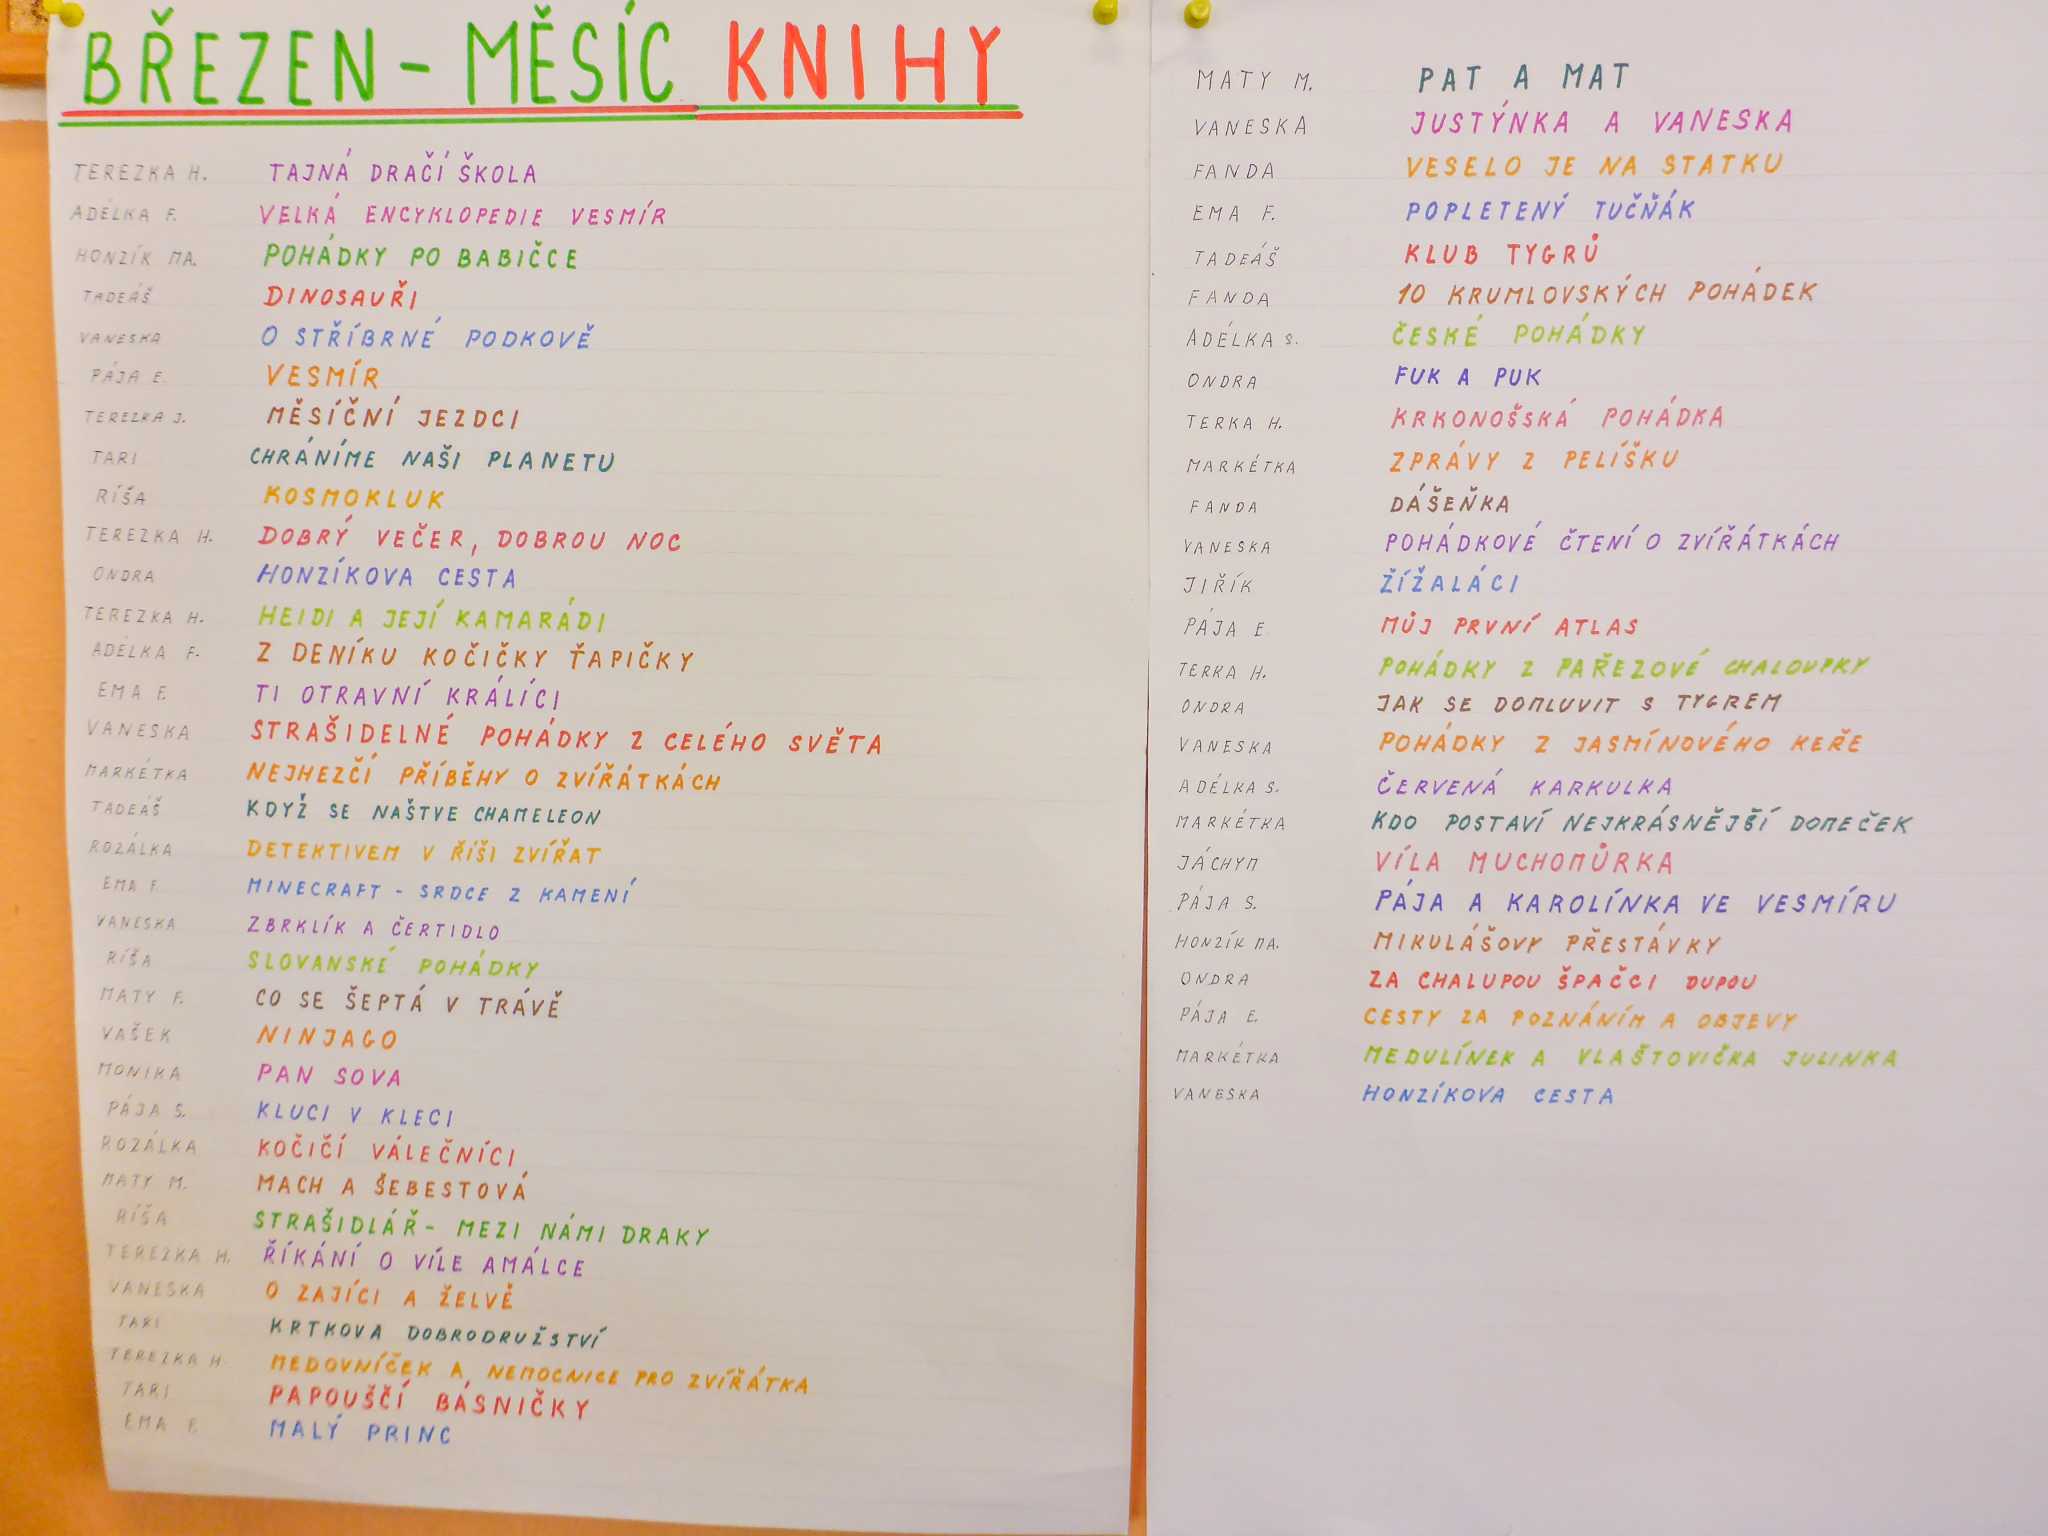 BŘEZEN - MĚSÍC KNIHY
TEREZKA H. TAJNÁ DRAČÍ ŠKOLA
ADÉLKA F. VELKÁ ENCYKLOPEDIE VESMÍR
HONZÍK MA. POHÁDKY PO BABIČCE
TADEÁŠ DINOSAUŘI
VANESKA O STŘÍBRNÉ PODKOVĚ
PÁJA E. VESMÍR
TEREZKA J. MĚSÍČNÍ JEZDCI
TARI CHRÁNÍME NAŠI PLANETU
RÍŠA KOSMOKLUK
TEREZKA H. DOBRÝ VEČER, DOBROU NOC
ONDRA HONZÍKOVA CESTA
TEREZKA H. HEIDI A JEJÍ KAMARÁDI
ADÉLKA F. Z DENÍKU KOČIČKY ŤAPIČKY
EMA F. TI OTRAVNÍ KRÁLÍCI
VANESKA STRAŠIDELNÉ POHÁDKY Z CELÉHO SVĚTA
MARKÉTKA NEJHEZČÍ PŘÍBĚHY O ZVÍŘÁTKÁCH
TADEÁŠ KDYŽ SE NAŠTVE CHAMELEON
ROZÁLKA DETEKTIVEM V ŘÍŠI ZVÍŘAT
EMA F. MINECRAFT - SRDCE Z KAMENÍ
VANESKA ZBRKLÍK A ČERTIDLO
RÍŠA SLOVANSKÉ POHÁDKY
MATY F. CO SE ŠEPTÁ V TRÁVĚ
VAŠEK NINJAGO
MONIKA PAN SOVA
PÁJA S. KLUCI V KLECI
ROZÁLKA KOČIČÍ VÁLEČNÍCI
MATY M. MACH A ŠEBESTOVÁ
RÍŠA STRAŠIDLÁŘ - MEZI NÁMI DRAKY
TEREZKA H. ŘÍKÁNÍ O VÍLE AMÁLCE
VANESKA O ZAJÍCI A ŽELVĚ
TARI KRTKOVA DOBRODRUŽSTVÍ
TEREZKA H. MEDOVNÍČEK A NEMOCNICE PRO ZVÍŘÁTKA
TARI PAPOUŠČÍ BÁSNIČKY
EMA F. MALÝ PRINC
MATY M. PAT A MAT
VANESKA JUSTÝNKA A VANESKA
FANDA VESELO JE NA STATKU
EMA F. POPLETENÝ TUČŇÁK
TADEÁŠ KLUB TYGRŮ
FANDA 10 KRUMLOVSKÝCH POHÁDEK
ADÉLKA S. ČESKÉ POHÁDKY
ONDRA FUK A PUK
TERKA H. KRKONOŠSKÁ POHÁDKA
MARKÉTKA ZPRÁVY Z PELÍŠKU
FANDA DÁŠEŇKA
VANESKA POHÁDKOVÉ ČTENÍ O ZVÍŘÁTKÁCH
JIŘÍK ŽÍŽALÁCI
PÁJA E. MŮJ PRVNÍ ATLAS
TERKA H. POHÁDKY Z PAŘEZOVÉ CHALOUPKY
ONDRA JAK SE DOMLUVIT S TYGREM
VANESKA POHÁDKY Z JASMÍNOVÉHO KEŘE
ADÉLKA S. ČERVENÁ KARKULKA
MARKÉTKA KDO POSTAVÍ NEJKRÁSNĚJŠÍ DOMEČEK
JÁCHYM VÍLA MUCHOMŮRKA
PÁJA S. PÁJA A KAROLÍNKA VE VESMÍRU
HONZÍK MA. MIKULÁŠOVY PŘESTÁVKY
ONDRA ZA CHALUPOU ŠPAČCI DUPOU
PÁJA E. CESTY ZA POZNÁNÍM A OBJEVY
MARKÉTKA MEDULÍNEK A VLAŠTOVIČKA JULINKA
VANESKA HONZÍKOVA CESTA